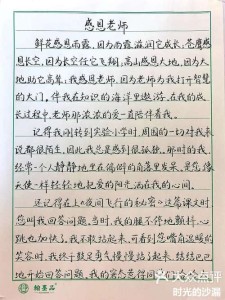 感恩老师
鲜花感恩雨露，因为雨露滋润它成长，苍鹰感
恩长空，因为长空任它飞翔；高山感恩大地，因为大
地助它高耸；我感恩老师，因为老师为我打开智慧
的大门。伴我在知识的海洋里遨游，在我的成
长过程中，老师那浓浓的爱一直陪伴着我。
记得我刚转到实验小学时，周围的一切对我来
说都很陌生，因此我总是感到很孤独，那时的我，
经常一个人静静地在偏僻的角落里发呆，是您像
天使一样轻轻地把爱的阳光洒在我的心间。
还记得在上《夜间飞行的秘密》这篇课文时
您叫我回答问题。当时，我的腿不停地颤抖，心
跳也加快了，我不敢站起来，可看到您嘴角温暖的
笑容时，我终于鼓足勇气慢慢站了起来，结结巴巴
地开始回答问题，我的害怕
点评
时光的沙漏